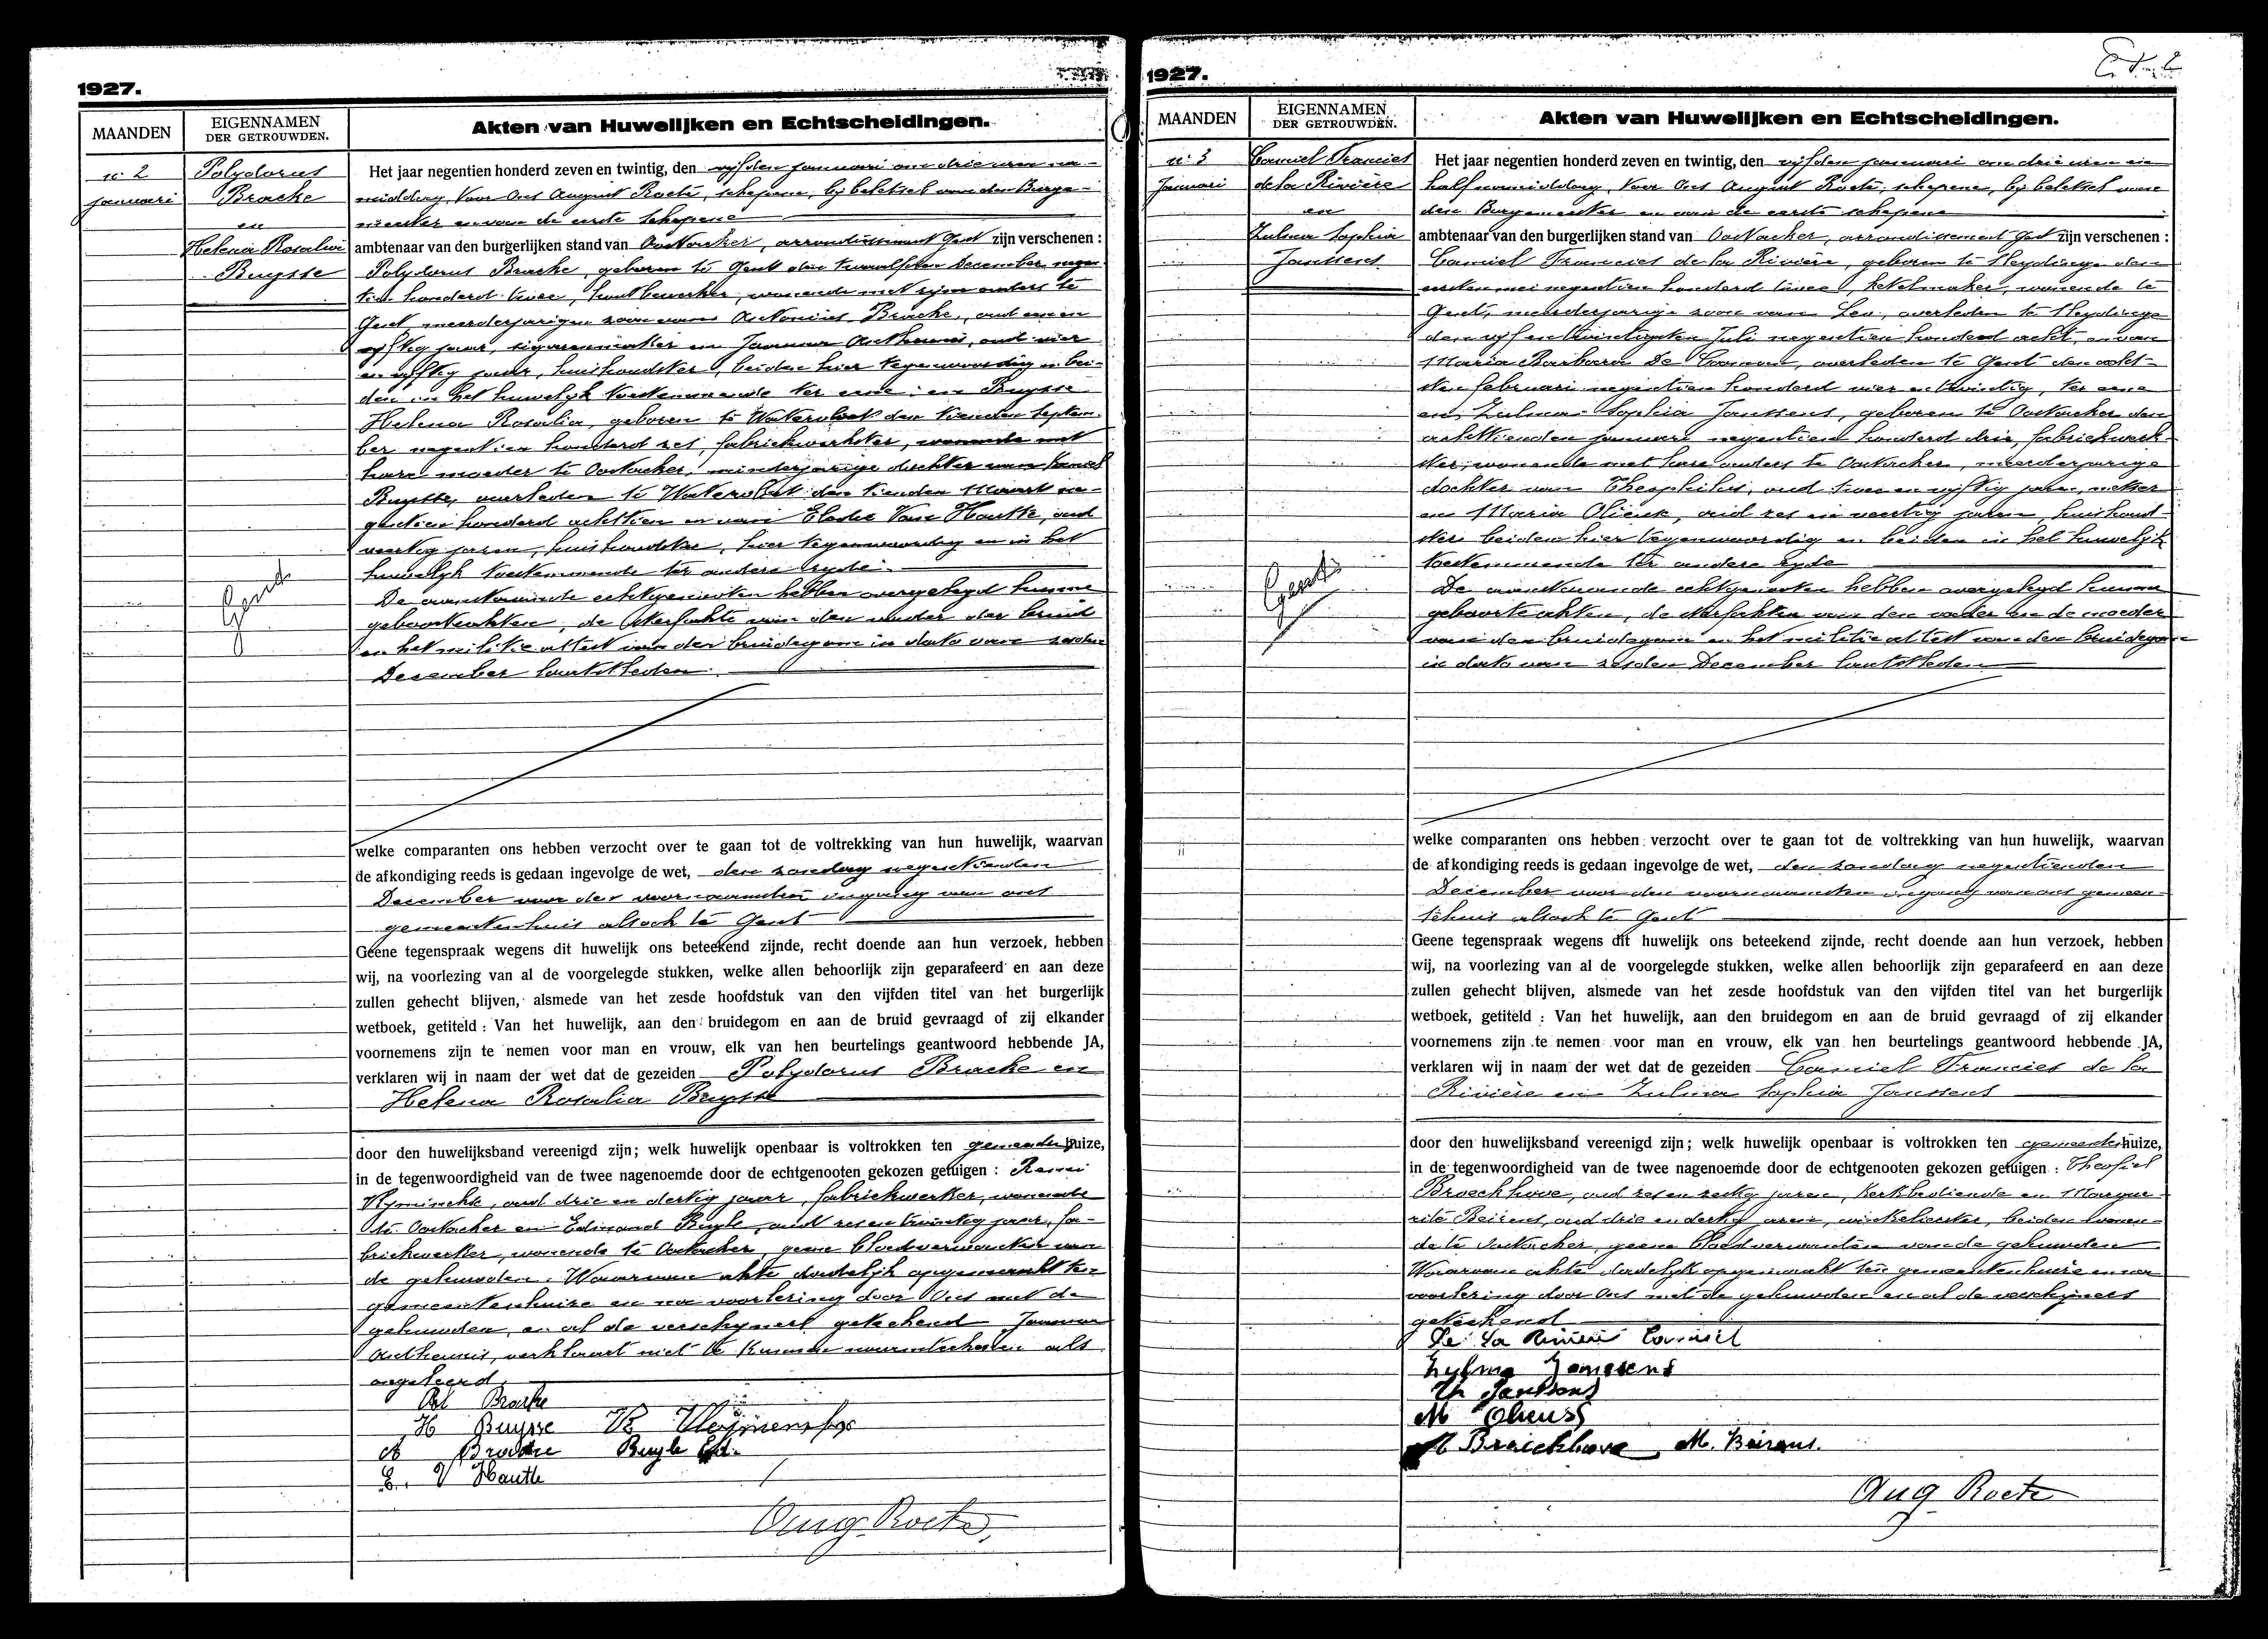 1927.
MAANDEN
EIGENNAMEN
DER GETROUWDEN.
Akten van Huwelijken en Echtscheidingen.
n. 2
januari
Polydorus
Bracke
en
Helena Rosalia
Buysse
Gent
Het jaar negentien honderd zeven en twintig, den vijfden januari om drie uren na-
middag, Voor Ons August Roete, schepene, bij beletsel van den Burge-
meester en van de eerste schepene
ambtenaar van den burgerlijken stand van Oostacker, arrondissement Gent zijn verschenen :
Polydorus Bracke, geboren te Gent den twaalfden December negen
tien honderd twee, houtbewerker, wonende met zijne ouders te
Gent, meerderjarigen zoon van Bracke, oud een en
vijftig jaar, sigarenmaker en Joanna Anthennis, oud vier
en vijftig jaar, huishoudster, beiden hier tegenwoordig en bei-
den in het huwelijk toestemmende ter eene; en Buysse
Helena Rosalia, geboren te Watervliet den tienden Septem-
ber negentien honderd zes, fabriekwerkster, wonende met
hare moeder te Oostacker, minderjarige dochter van
Buysse, overleden te Watervliet den tienden Maart ne-
gentien honderd achttien en van Elodie Van Hautte, oud
veertig jaren, huishoudster, hier tegenwoordig en in het
huwelijk toestemmende ter andere zyde.
De aanstaande echtgenooten hebben overgelegd hunne
geboorteakten, de sterfakte van den vader der bruid
en het militie attest van den bruidegom in dato van zesden
December laatstleden.
welke comparanten ons hebben verzocht over te gaan tot de voltrekking van hun huwelijk, waarvan
de afkondiging reeds is gedaan ingevolge de wet, den zondag negentienden
December voor den voornaamsten ingang van ons
gemeentenhuis alsook te Gent
Geene tegenspraak wegens dit huwelijk ons beteekend zijnde, recht doende aan hun verzoek, hebben
wij, na voorlezing van al de voorgelegde stukken, welke allen behoorlijk zijn geparafeerd en aan deze
zullen gehecht blijven, alsmede van het zesde hoofdstuk van den vijfden titel van het burgerlijk
wetboek, getiteld : Van het huwelijk, aan den bruidegom en aan de bruid gevraagd of zij elkander
voornemens zijn te nemen voor man en vrouw, elk van hen beurtelings geantwoord hebbende JA,
verklaren wij in naam der wet dat de gezeiden Polydorus Bracke en
Helena Rosalia Buysse
door den huwelijksband vereenigd zijn; welk huwelijk openbaar is voltrokken ten gemeentenhuize,
in de tegenwoordigheid van de twee nagenoemde door de echtgenooten gekozen getuigen : Remi
oud drie en dertig jaar, fabriekwerker, wonende
te Oostacker en Edmond Buyle, oud zes en twintig jaar, fa-
briekwerker, wonende te Oostacker, geene bloedverwanten van
de gehuwden. Waarvan akte dadelijk opgemaakt ten
gemeentenhuize en na voorlezing door Ons met de
gehuwden, en al de verschijners geteekend Joanna
Anthennis, verklaart niet te kunnen naamteekenen als
ongeleerd.
Pol Bracke
H Buysse
A Bracke Buyle Ed.
E. V Hautte
Aug. Roete
1927.
MAANDEN
EIGENNAMEN
DER GETROUWDEN.
Akten van Huwelijken en Echtscheidingen.
n. 3
Januari
Camiel Francies
de la Rivière
en
Zulma Sophia
Janssens
Gent
Het jaar negentien honderd zeven en twintig, den vijfden januari om drie uren en
half namiddag, Voor Ons August Roete, schepene, bij beletsel van
den Burgemeester en van de eerste schepene
ambtenaar van den burgerlijken stand van Oostacker, arrondissement Gent zijn verschenen :
Camiel Francies de la Rivière, geboren te Sleydinge den
eersten mei negentien honderd twee, ketelmaker, wonende te
Gent, meerderjarige zoon van Leo, overleden te Sleydinge
den vijf en twintigsten Juli negentien honderd acht, en van
Maria Barbara De Coninck, overleden te Gent den acht-
sten februari negentien honderd vier en twintig, ter eene
en Zulma Sophia Janssens, geboren te Oostacker den
achttienden januari negentien honderd drie, fabriekwerk-
ster, wonende met hare ouders te Oostacker, meerderjarige
dochter van Theophilus, oud twee en vijftig jaren, metser
en Maria Olieux, oud zes en veertig jaren, huishoud-
ster beiden hier tegenwoordig en beiden in het huwelijk
toestemmende ter andere zyde
De aanstaande echtgenooten hebben overgelegd hunne
geboorteakten, de sterfakten van den vader en de moeder
van den bruidegom en het militie attest van den bruidegom
in dato van zesden December laatstleden
welke comparanten ons hebben verzocht over te gaan tot de voltrekking van hun huwelijk, waarvan
de afkondiging reeds is gedaan ingevolge de wet, den zondag negentienden
December voor den voornaamsten ingang van ons gemeen-
tehuis alsook te Gent
Geene tegenspraak wegens dit huwelijk ons beteekend zijnde, recht doende aan hun verzoek, hebben
wij, na voorlezing van al de voorgelegde stukken, welke allen behoorlijk zijn geparafeerd en aan deze
zullen gehecht blijven, alsmede van het zesde hoofdstuk van den vijfden titel van het burgerlijk
wetboek, getiteld : Van het huwelijk, aan den bruidegom en aan de bruid gevraagd of zij elkander
voornemens zijn te nemen voor man en vrouw, elk van hen beurtelings geantwoord hebbende JA,
verklaren wij in naam der wet dat de gezeiden Camiel Francies de la
Rivière en Zulma Sophia Janssens
door den huwelijksband vereenigd zijn; welk huwelijk openbaar is voltrokken ten gemeentenhuize,
in de tegenwoordigheid van de twee nagenoemde door de echtgenooten gekozen getuigen : Theofiel
Broeckhove, oud zes en zestig jaren, kerkbediende en Margue-
rite Beirens, oud drie en dertig jaren, winkelierster, beiden wonen-
de te Oostacker, geene bloedverwanten van de gehuwden
Waarvan akte dadelijk opgemaakt ten gemeentenhuize en na
voorlezing door Ons met de gehuwden en al de verschijners
geteekend
De La Rivière Camiel
Zulma Janssens
Th Janssens
M
Braeckhove M. Beirens.
Aug Roete